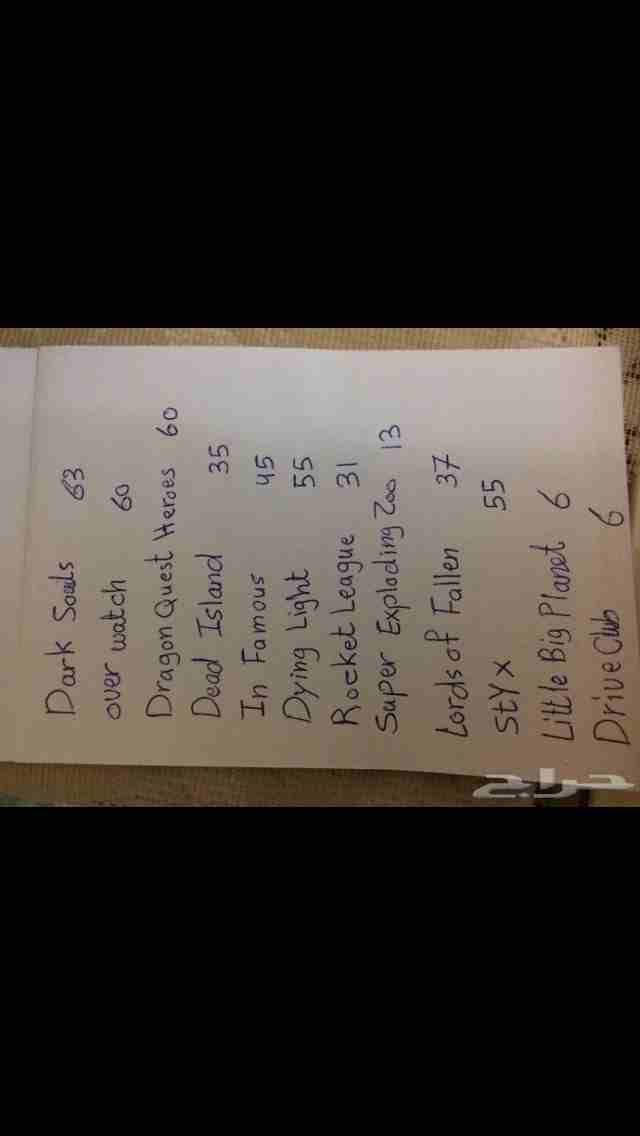 Dark Souls 63
over watch 60
Dragon Quest Heroes 60
Dead Island 35
In Famous 45
Dying Light 55
Rocket League 31
Super Exploding Zoo 13
Lords of Fallen 37
Styx 55
Little Big Planet 6
Drive Club 6
حراج